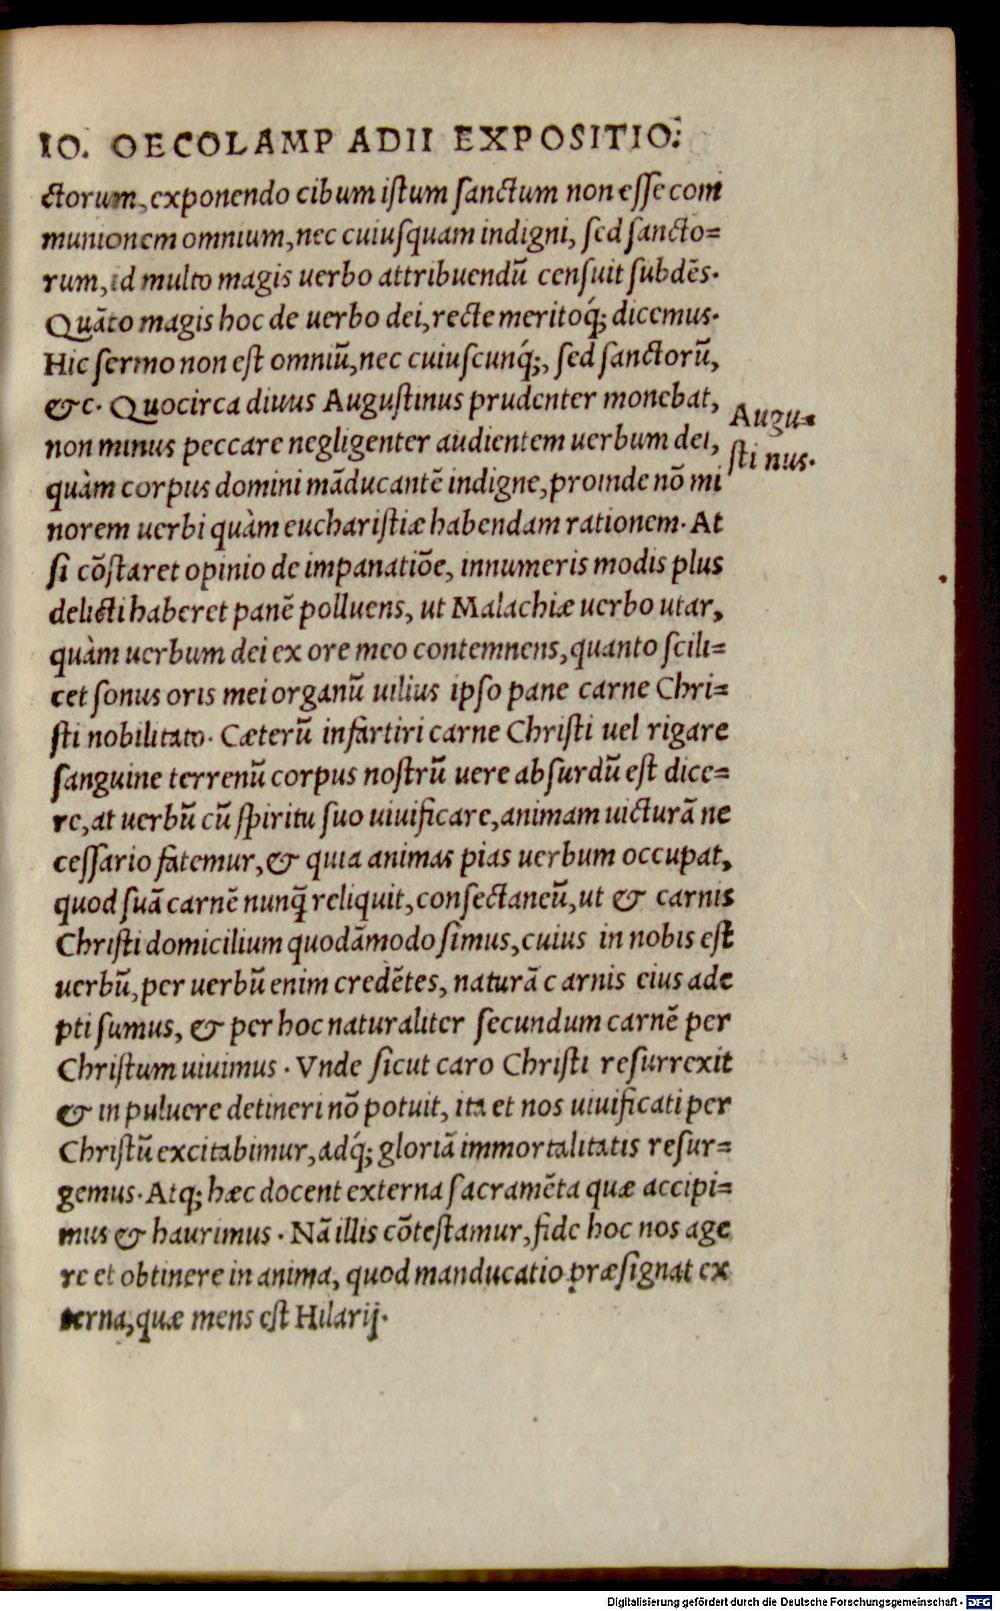 IO. OECOLAMPADII EXPOSITIO.
ctorum, exponendo cibum istum sanctum non esse com
munionem omnium, nec cuiusquam indigni, sed sancto=
rum, id multo magis uerbo attribuendū censuit subdēs.
Quāto magis hoc de uerbo dei, recte meritoq́; dicemus.
Hic sermo non est omniū, nec cuiuscunq́;, sed sanctorū,
&c. Quocirca diuus Augustinus prudenter monebat,
non minus peccare negligenter audientem uerbum dei,
Augu=
stinus.
quàm corpus domini māducantē indigne, proinde nō mi
norem uerbi quàm eucharistiæ habendam rationem. At
si cōstaret opinio de impanatiōe, innumeris modis plus
delicti haberet panē polluens, ut Malachiæ uerbo utar,
quàm uerbum dei ex ore meo contemnens, quanto scili=
cet sonus oris mei organū uilius ipso pane carne Chri=
sti nobilitato. Cæterū infartiri carne Christi uel rigare
sanguine terrenū corpus nostrū uere absurdū est dice=
re, at uerbū cū spiritu suo uiuificare, animam uicturā ne
cessario fatemur, & quia animas pias uerbum occupat,
quod suā carnē nunq̄ reliquit, consectaneū, ut & carnis
Christi domicilium quodāmodo simus, cuius in nobis est
uerbū, per uerbū enim credētes, naturā carnis eius ade
pti sumus, & per hoc naturaliter secundum carnē per
Christum uiuimus. Vnde sicut caro Christi resurrexit
& in puluere detineri nō potuit, ita et nos uiuificati per
Christū excitabimur, adq́; gloriā immortalitatis resur=
gemus. Atq; hæc docent externa sacramēta quæ accipi=
mus & haurimus. Nā illis cōtestamur, fide hoc nos age
re et obtinere in anima, quod manducatio præsignat ex
terna, quæ mens est Hilarij.
Digitalisierung gefördert durch die Deutsche Forschungsgemeinschaft - DFG